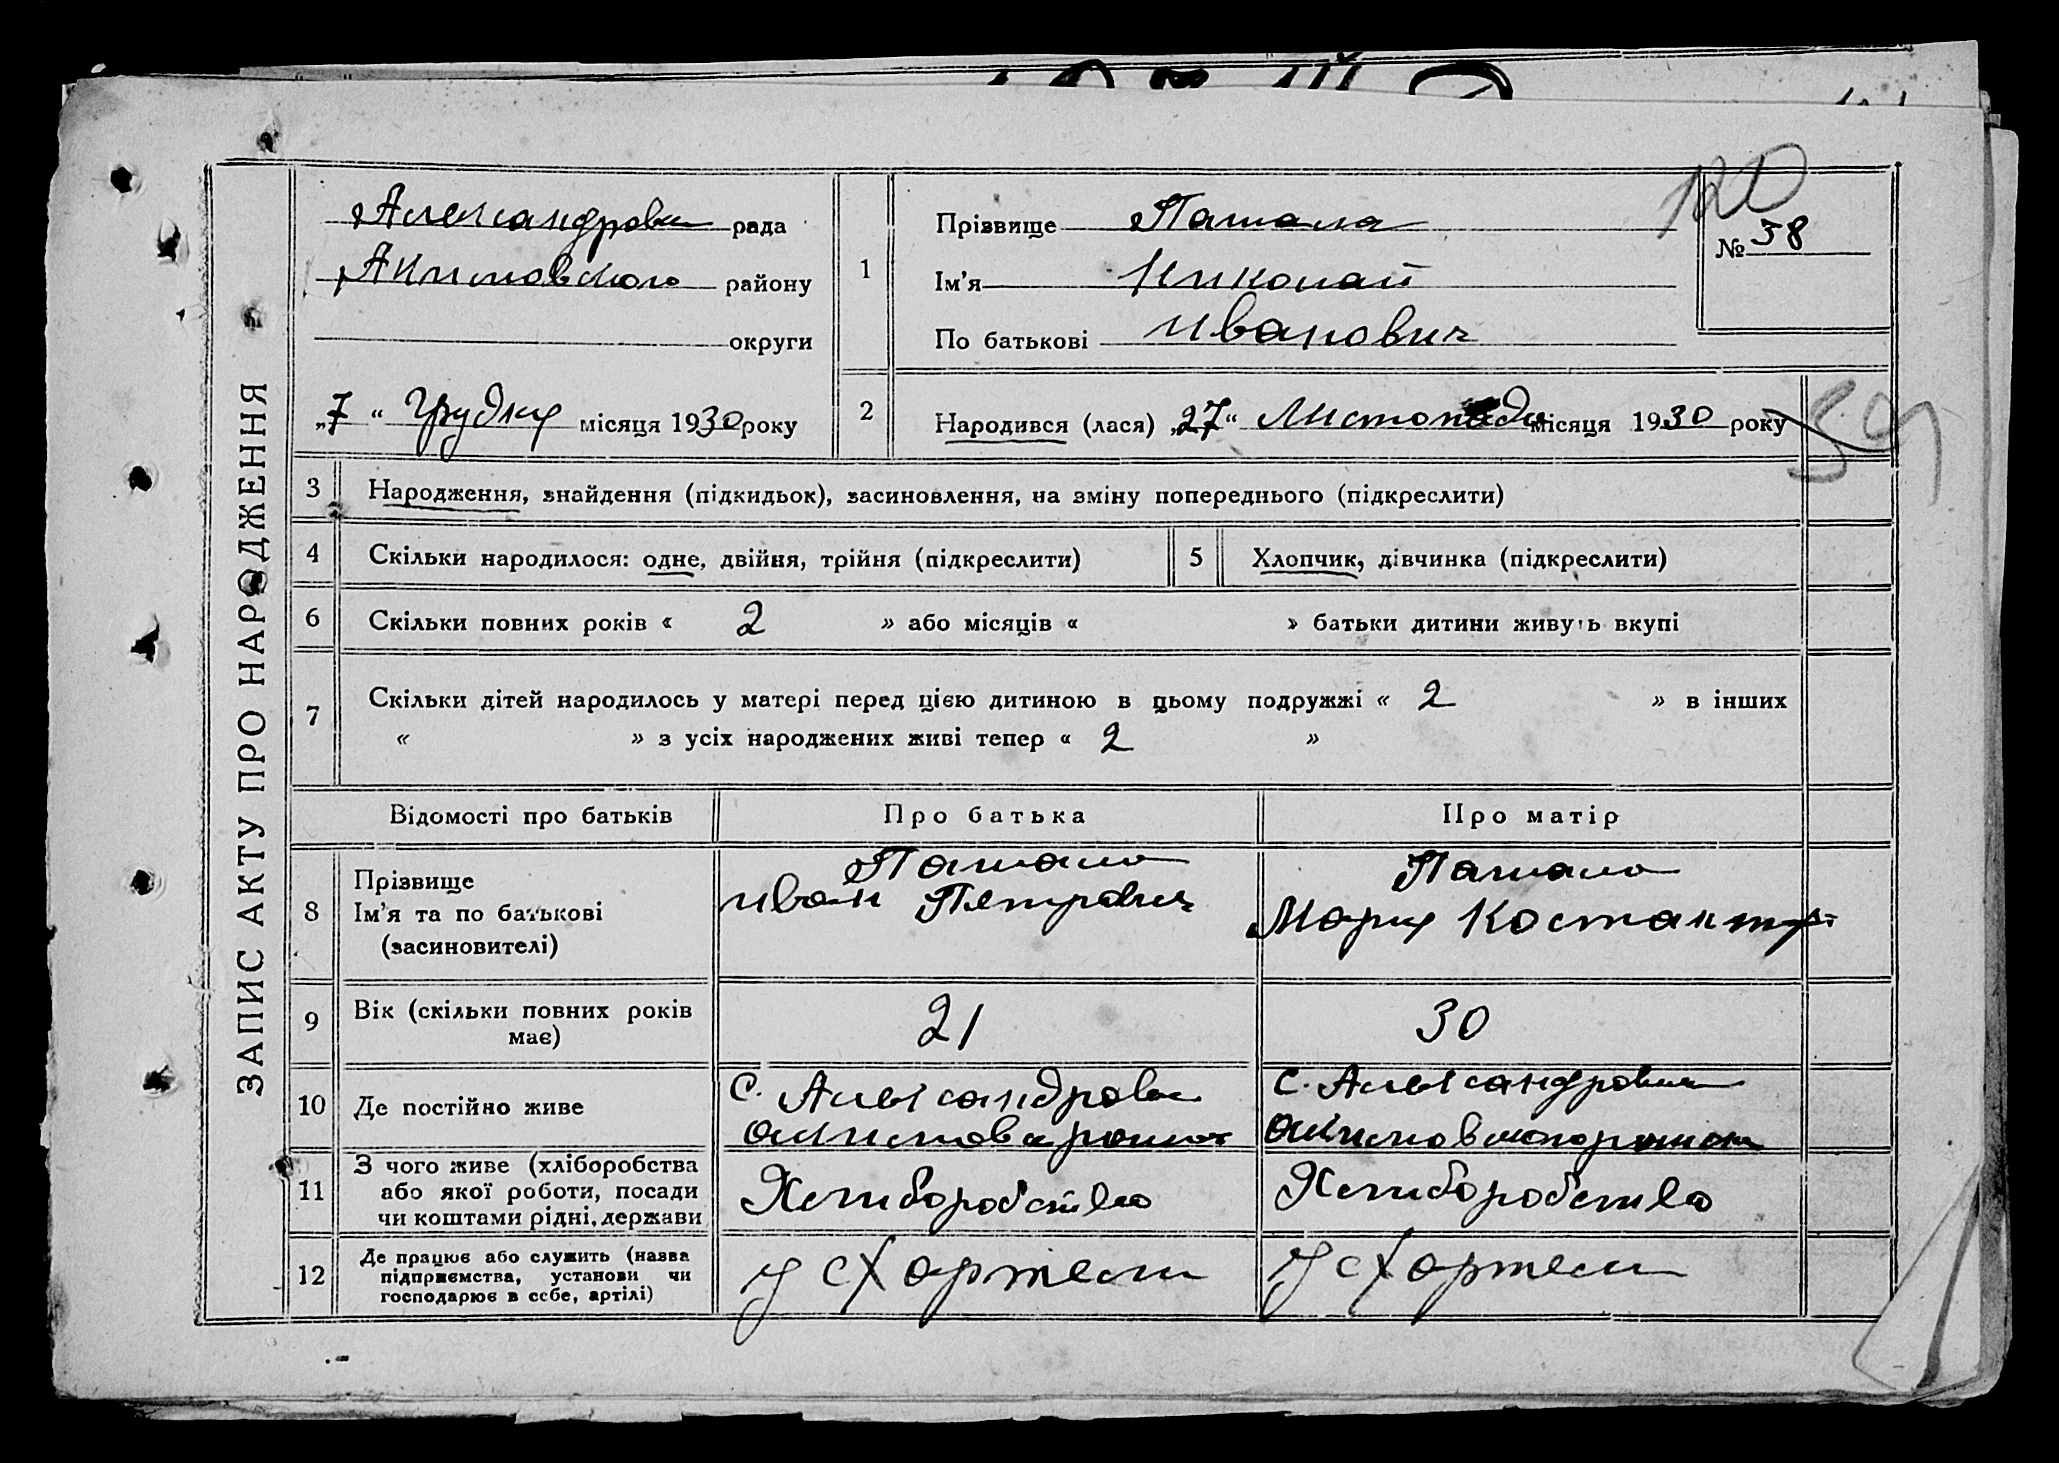 ЗАПИС АКТУ ПРО НАРОДЖЕННЯ
Александровк рада
Акимовского району
округи
„7“ Грудня місяця 1930 року
1
Прізвище
Ім’я Николай
По батькові Иванович
120
№ 38
2
Народився (лася) „27“ Листопада місяця 1930 року
59
3 Народження, знайдення (підкидьок), засиновлення, на зміну попереднього (підкреслити)
4 Скільки народилося: одне, двійня, трійня (підкреслити)
5 Хлопчик, дівчинка (підкреслити)
6 Скільки повних років « 2 » або місяців « » батьки дитини живуть вкупі
7 Скільки дітей народилось у матері перед цією дитиною в цьому подружжі « 2 » в інших
« » з усіх народжених живі тепер « 2 »
Відомості про батьків
Про батька
Про матір
8
Прізвище
Ім’я та по батькові
(засиновителі)
Иван Петрович
Мария
9
Вік (скільки повних років
має)
21
30
10
Де постійно живе
с. Александровк
с. Александровк
11
З чого живе (хліборобства
або якої роботи, посади
чи коштами рідні, держави
Хлиборобство
Хлиборобство
12
Де працює або служить (назва
підприємства, установи чи
господарює в себе, артілі)
у схартели
у схартели